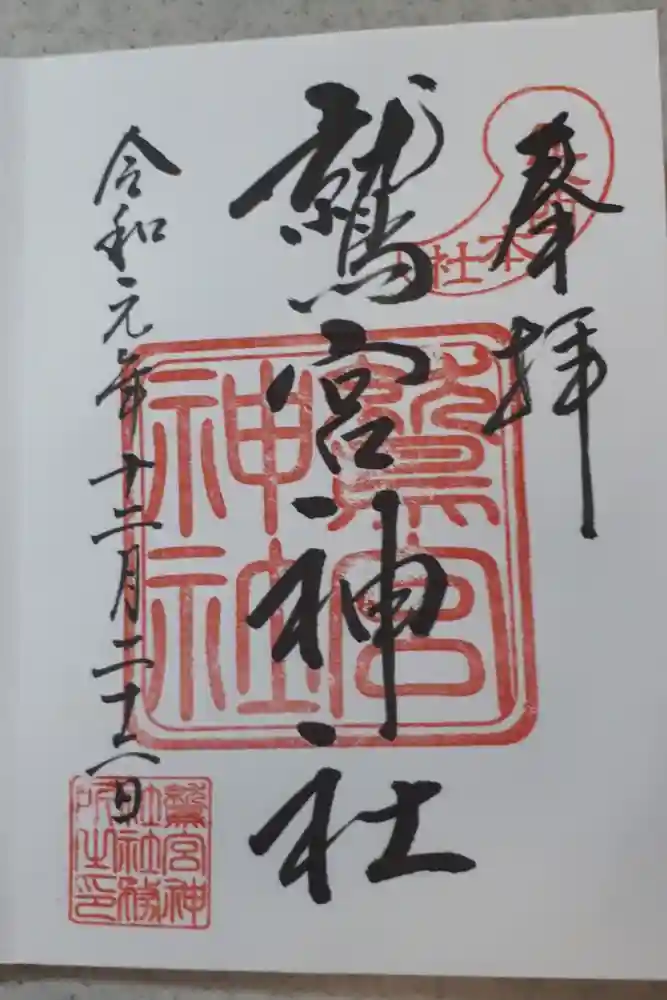 奉拝
鷲宮神社
令和元年十二月二十八日
本社
鷲宮
神社
鷲宮神
社社務
所之印